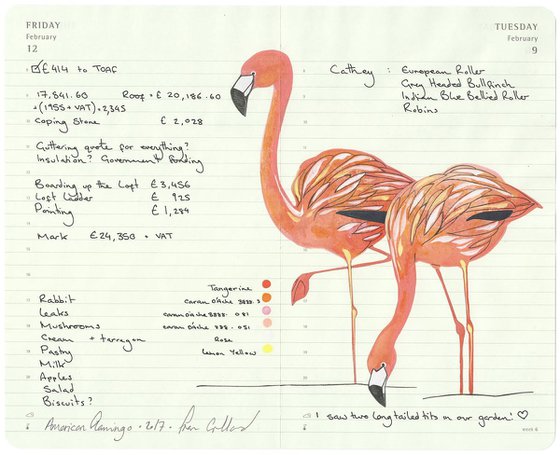 FRIDAY
February
12
£414 to TOAF
17,841.60 Roof = £20,186.60
+(1955+VAT) = 2,345
Coping Stone £2,028
Guttering quote for everything?
Insulation? Government funding
Boarding up the Loft £3,456
Loft Ladder £ 925
Pointing £1,284
Mark £24,350 + VAT
Tangerine
Rabbit caran d'Ache
Leaks caran d'ache
Mushrooms caran d'Ache
Cream + tarragon Rose
Pastry Lemon Yellow
Milk
Apples
Salad
Biscuits?
American Flamingo · 2017 ·
TUESDAY
February
9
Cathey : European Roller
Grey Headed Bullfinch
Indian Blue Bellied Roller
Robins
I saw two long tailed tits in our garden! ♡
week 6